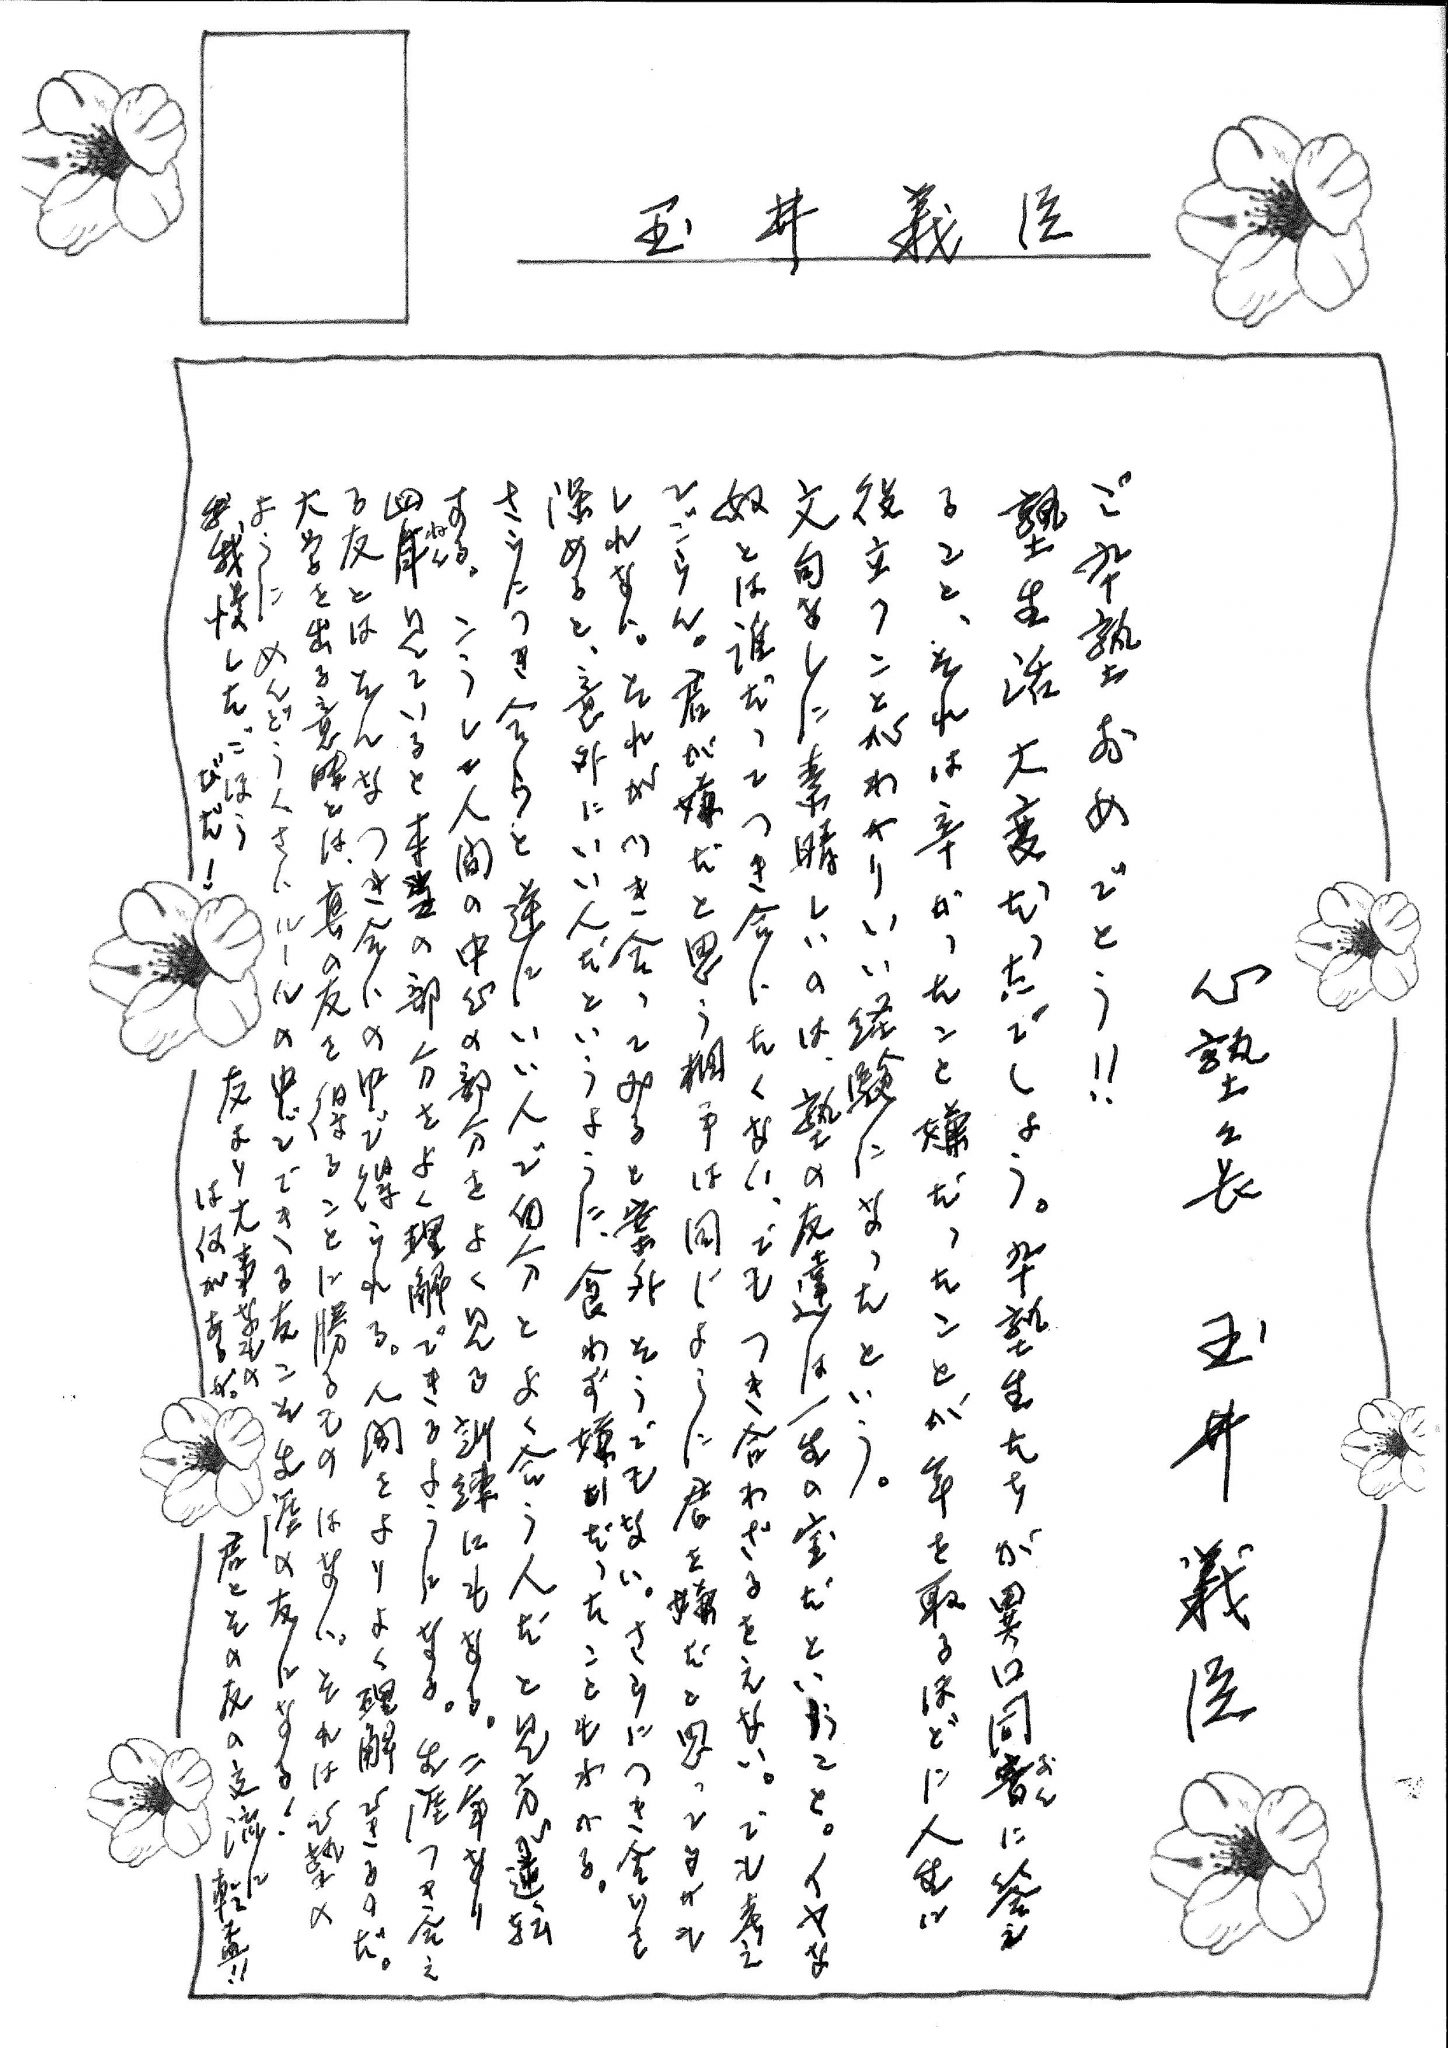 玉井義臣
心塾々長 玉井義臣
ご卒塾おめでとう!!
塾生活大変だったでしょう。卒塾生たちが異口同音に答え
おん
ること、それは辛かったこと嫌だったことが年を取るほどに人生に
役立つことがわかりいい経験になったという。
文句なしに素晴しいのは、塾の友達は一生の宝だということ。イヤな
奴とは誰だってつき合いたくない、でもつき合わざるをえない。でも考え
てごらん。君が嫌だと思う相手は同じように君を嫌だと思ってるかも
しれない。それがつき合ってみると案外そうでもない。さらにつき合いを
深めると、意外にいい人だというように、食わず嫌いだったこともわかる。
さらにつき合うと逆にいい人で自分とよく合う人だと見方が逆転
する。こうして人間の中心の部分をよく見る訓練にもなる。二年なり
四年見ていると本当の部分をよく理解できるようになる。生涯つき合え
ねん
る友とはそんなつき合いの中で得られる。人間をよりよく理解できるのだ。
大学を出る意味とは、真の友を得ることに勝るものはない。それは心塾の
ようにめんどうくさいルールの中でできる友こそ生涯の友になる!
我慢したごほうびだ! 友より大事なものは何があるか。君とその友の交流に乾盃!!